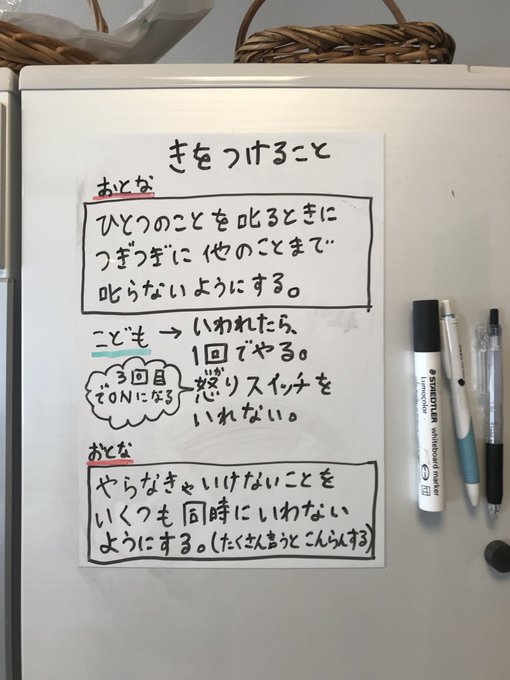 きをつけること
おとな
ひとつのことを叱るときに
つぎつぎに他のことまで
叱らないようにする。
こども → いわれたら、
1回でやる。
3回目
でONになる
怒りスイッチを
いれない。
おとな
やらなきゃいけないことを
いくつも同時にいわない
ようにする。(たくさん言うとこんらんする)
STAEDTLER
Lumocolor
whiteboard marker